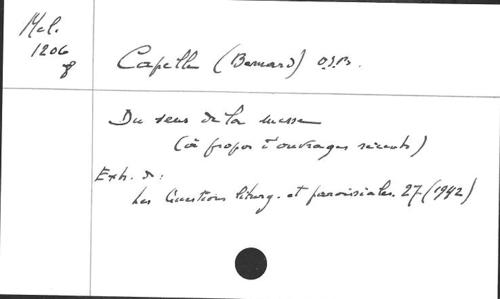 Mel.
1206
8
Capelle (Bernard) O.S.B.
Du sens de la messe
(à propos d'ouvrages récents)
Extr. de :
Les Questions liturg. et paroissiales. 27 (1942)